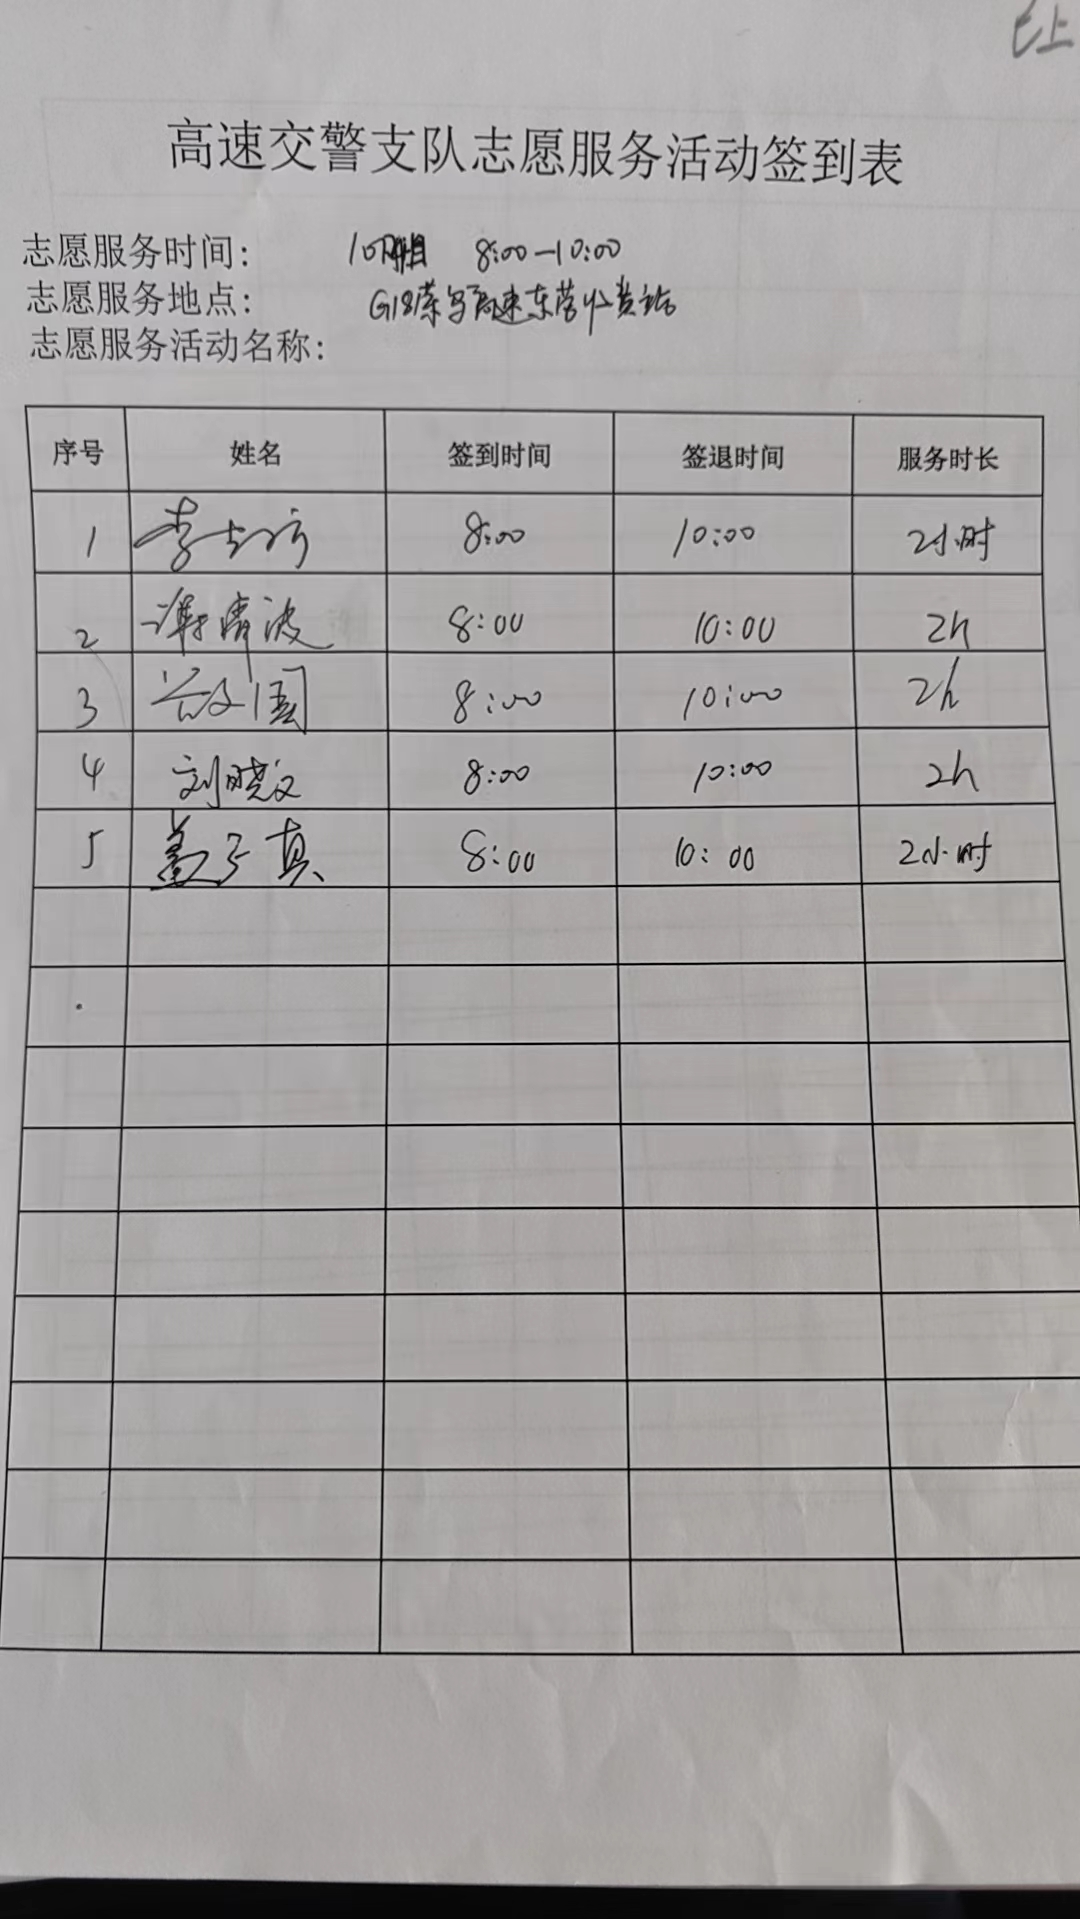 已上
高速交警支队志愿服务活动签到表
志愿服务时间: 10月 8:00—10:00
志愿服务地点: G18荣乌高速东营收费站
志愿服务活动名称:
序号 姓名 签到时间 签退时间 服务时长
1 李 8:00 10:00 2小时
2 清波 8:00 10:00 2h
3 国 8:00 10:00 2h
4 刘晓文 8:00 10:00 2h
5 盖子真 8:00 10:00 2小时